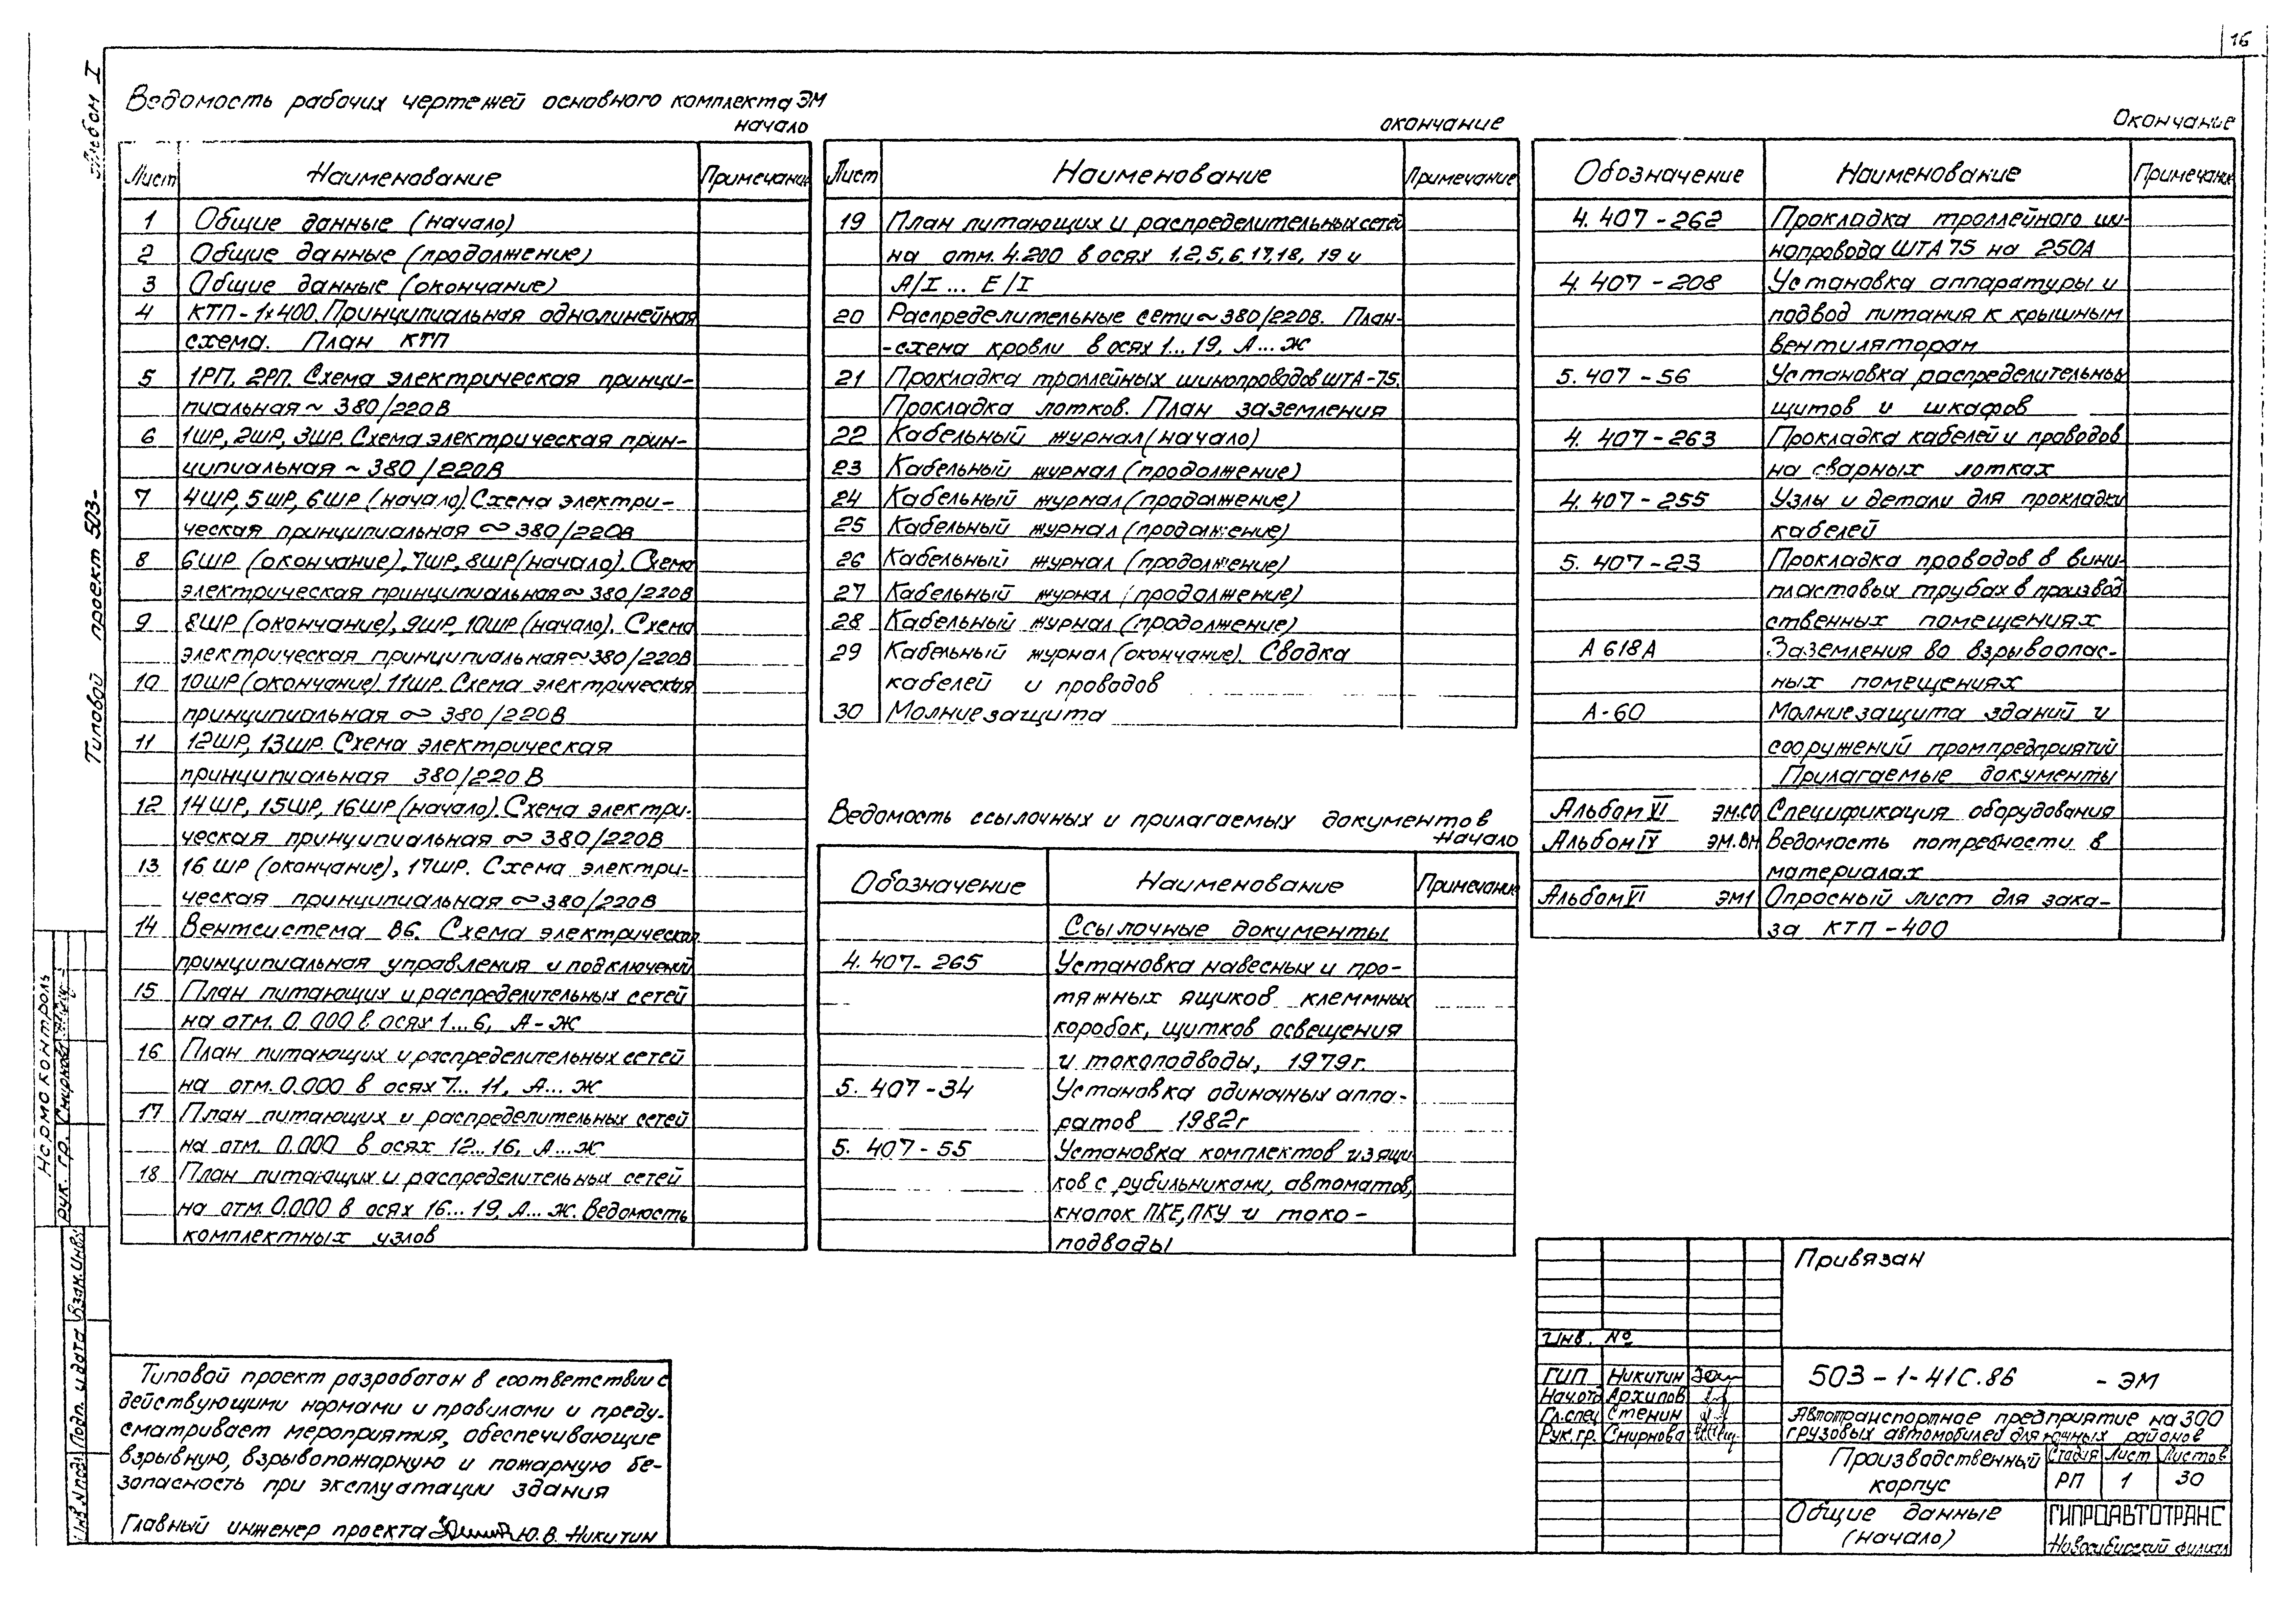 16
Альбом I
Типовой проект 503-
Ведомость рабочих чертежей основного комплекта ЭМ
начало
Лист Наименование Примечание
1 Общие данные (начало)
2 Общие данные (продолжение)
3 Общие данные (окончание)
4 КТП-1х400. Принципиальная однолинейная
схема. План КТП
5 1РП, 2РП. Схема электрическая принци-
пиальная ~ 380/220В
6 1ШР, 2ШР, 3ШР. Схема электрическая прин-
ципиальная ~ 380/220В
7 4ШР, 5ШР, 6ШР (начало). Схема электри-
ческая принципиальная ~ 380/220В
8 6ШР (окончание), 7ШР, 8ШР (начало). Схема
электрическая принципиальная ~ 380/220В
9 8ШР (окончание), 9ШР, 10ШР (начало). Схема
электрическая принципиальная ~ 380/220В
10 10ШР (окончание) 11ШР. Схема электрическая
принципиальная ~ 380/220В
11 12ШР, 13ШР. Схема электрическая
принципиальная 380/220В
12 14ШР, 15ШР, 16ШР (начало). Схема электри-
ческая принципиальная ~ 380/220В
13 16ШР (окончание), 17ШР. Схема электри-
ческая принципиальная ~ 380/220В
14 Вентсистема В6. Схема электрическая
принципиальная управления и подключений
15 План питающих и распределительных сетей
на отм. 0.000 в осях 1...6, А-Ж
16 План питающих и распределительных сетей
на отм. 0.000 в осях 7...11, А...Ж
17 План питающих и распределительных сетей
на отм. 0.000 в осях 12...16, А...Ж
18 План питающих и распределительных сетей
на отм. 0.000 в осях 16...19, А...Ж. Ведомость
комплектных узлов
окончание
Лист Наименование Примечание
19 План питающих и распределительных сетей
на отм. 4.200 в осях 1,2,5,6,17,18, 19 и
А/I... Е/I
20 Распределительные сети ~ 380/220В. План-
-схема кровли в осях 1...19, А...Ж
21 Прокладка троллейных шинопроводов ШТА-75.
Прокладка лотков. План заземления
22 Кабельный журнал (начало)
23 Кабельный журнал (продолжение)
24 Кабельный журнал (продолжение)
25 Кабельный журнал (продолжение)
26 Кабельный журнал (продолжение)
27 Кабельный журнал (продолжение)
28 Кабельный журнал (продолжение)
29 Кабельный журнал (окончание). Сводка
кабелей и проводов
30 Молниезащита
Ведомость ссылочных и прилагаемых документов
Начало
Обозначение Наименование Примечание
Ссылочные документы
4.407-265 Установка навесных и про-
тяжных ящиков клеммных
коробок, щитков освещения
и токоподводы, 1979г.
5.407-34 Установка одиночных аппа-
ратов 1982г
5.407-55 Установка комплектов из ящи
ков с рубильниками, автоматов,
кнопок ПКЕ, ПКУ и токо-
подводы
Окончание
Обозначение Наименование Примечание
4.407-262 Прокладка троллейного ши-
нопровода ШТА 75 на 250А
4.407-208 Установка аппаратуры и
подвод питания к крышным
вентиляторам
5.407-56 Установка распределительных
щитов и шкафов
4.407-263 Прокладка кабелей и проводов
на сварных лотках
4.407-255 Узлы и детали для прокладки
кабелей
5.407-23 Прокладка проводов в вини-
пластовых трубах в производ
ственных помещениях
А618А Заземления во взрывоопас-
ных помещениях
А-60 Молниезащита зданий и
сооружений промпредприятий
Прилагаемые документы
Альбом VI ЭМ.СО Спецификация оборудования
Альбом IV ЭМ.ВМ Ведомость потребности в
материалах
Альбом VI ЭМ1 Опросный лист для зака-
за КТП-400
Типовой проект разработан в соответствии с
действующими нормами и правилами и преду-
сматривает мероприятия, обеспечивающие
взрывную, взрывопожарную и пожарную бе-
зопасность при эксплуатации здания
Главный инженер проекта Ю.В. Никитин
Нормоконтроль
Рук. гр. Смирнова
Взам. инв.
Подп. и дата
Инв. N подл.
Привязан
Инв. №
ГИП Никитин
Нач.отд Архипов
Гл.спец Стенин
Рук.гр. Смирнова
503-1-41С.86 -ЭМ
Автотранспортное предприятие на 300
грузовых автомобилей для южных районов
Производственный
корпус
Стадия Лист Листов
РП 1 30
Общие данные
(начало)
ГИПРОАВТОТРАНС
Новосибирский филиал